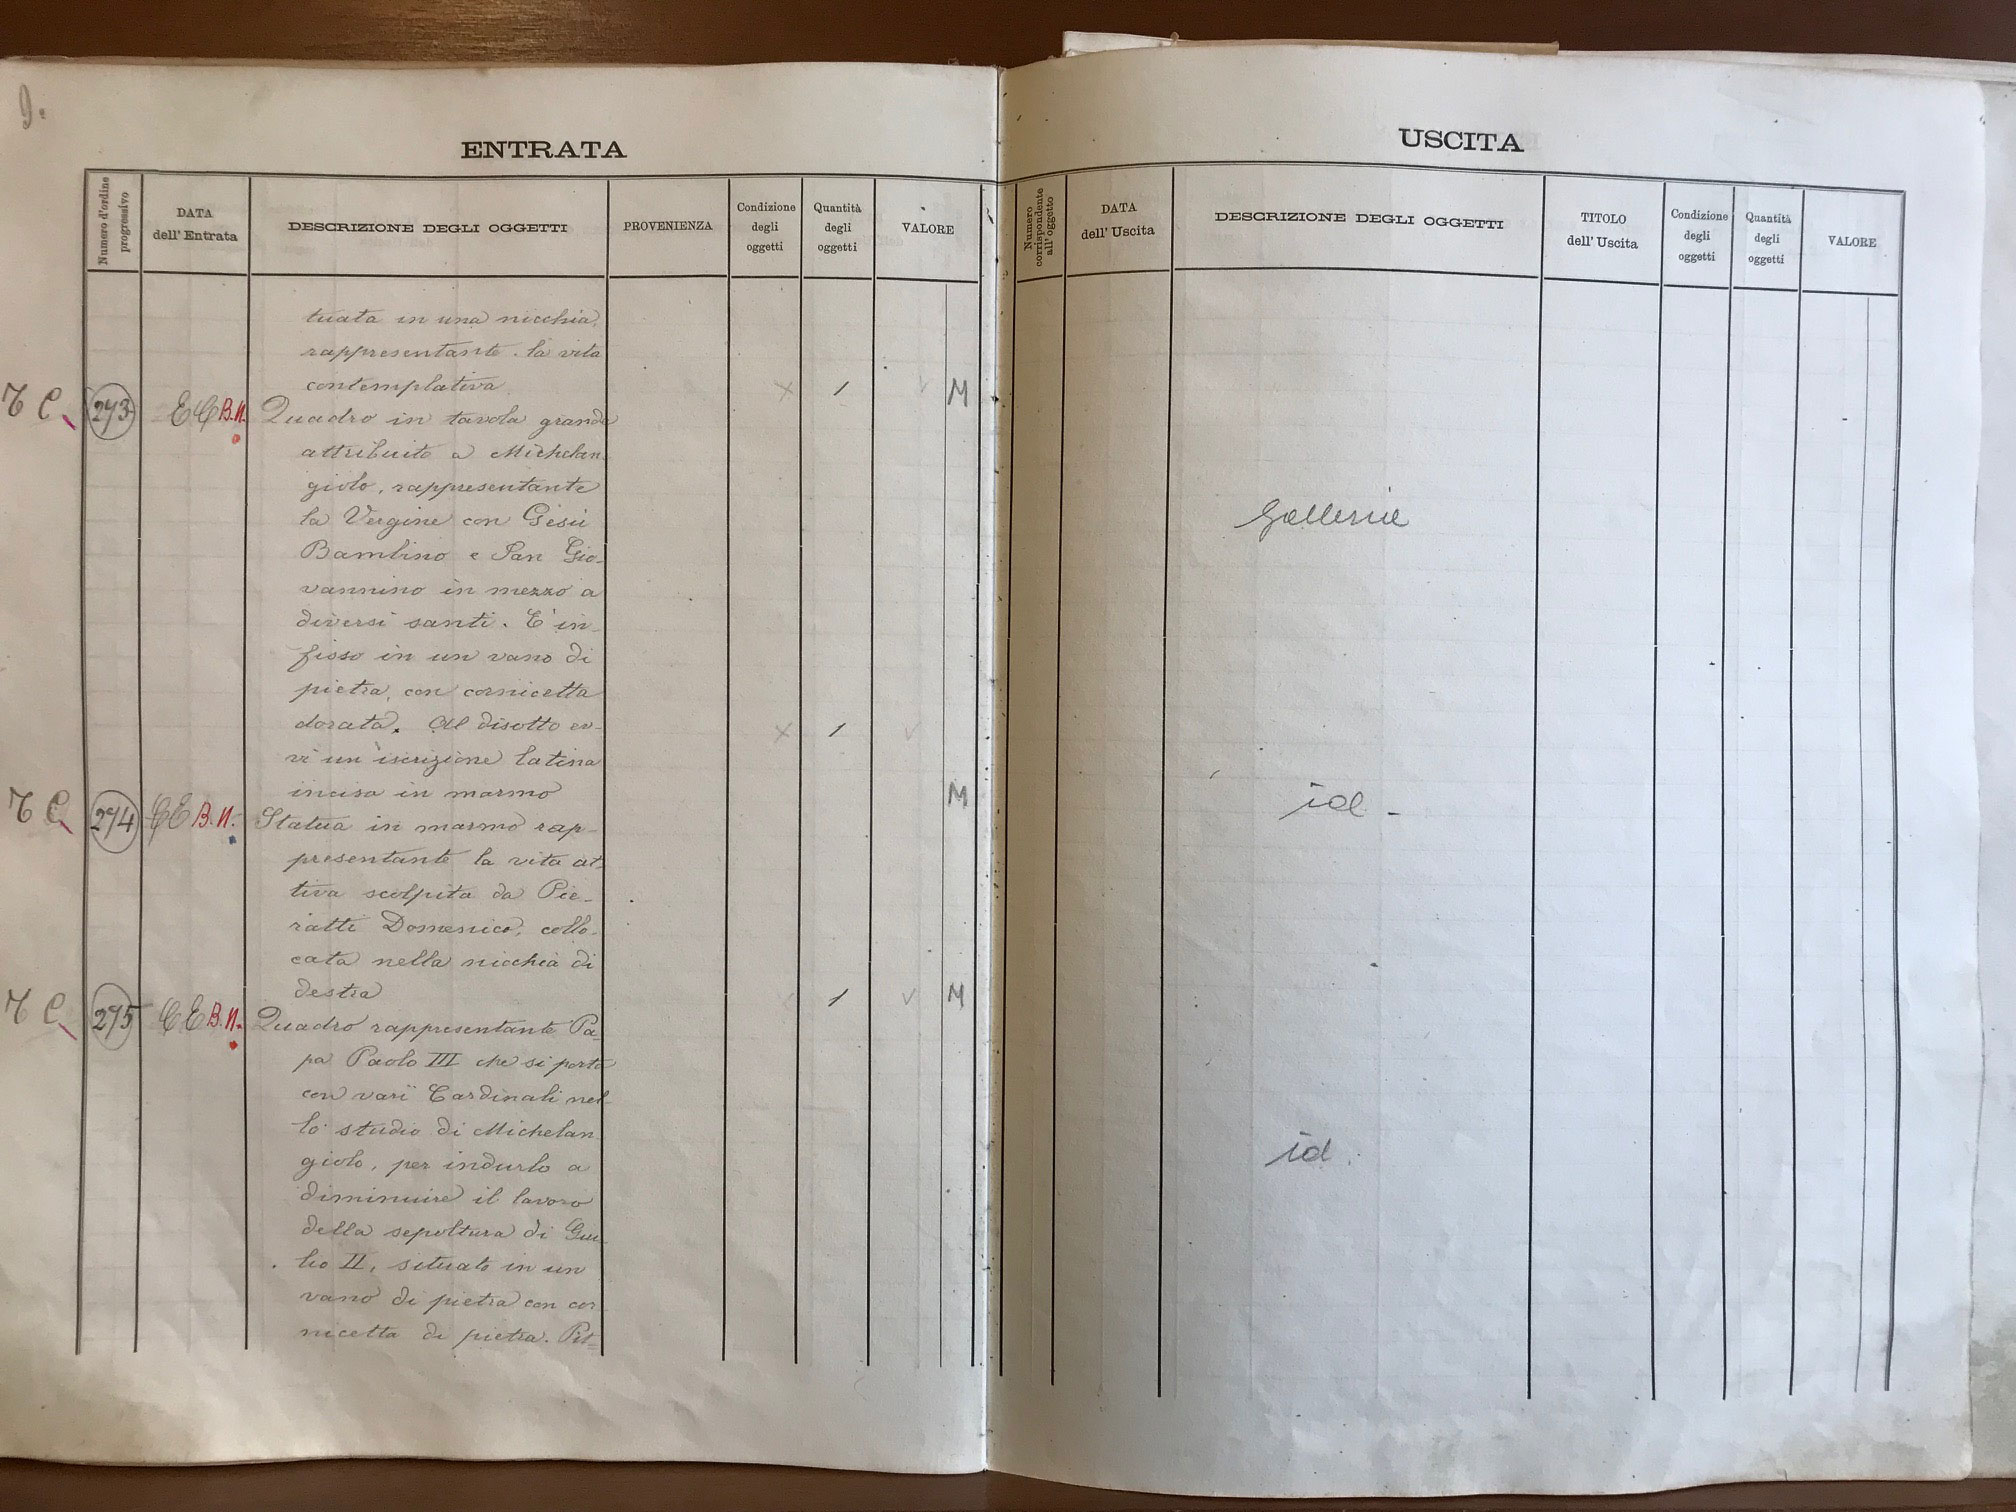 9.
ENTRATA
Numero d'ordine progressivo
DATA dell' Entrata
DESCRIZIONE DEGLI OGGETTI
PROVENIENZA
Condizione degli oggetti
Quantità degli oggetti
VALORE
tuata in una nicchia,
rappresentante la vita
contemplativa × 1 √ M
T C 273 E C B.N. Quadro in tavola grande
attribuito a Michelan
giolo, rappresentante
la Vergine con Gesù
Bambino e San Gio-
vannino in mezzo a
diversi santi. È in-
fisso in un vano di
pietra, con cornicetta
dorata. Al disotto ev- × 1 √
vi un'iscrizione latina
incisa in marmo M
T C 274 C E B.N. Statua in marmo rap-
presentante la vita at-
tiva scolpita da Pie-
ratti Domenico, collo-
cata nella nicchia di
destra 1 √ M
T C 275 C E B.N. Quadro rappresentante Pa-
pa Paolo III che si porta
con varï Cardinali nel-
lo studio di Michelan
giolo, per indurlo a
diminuire il lavoro
della sepoltura di Giu
lio II, situato in un
vano di pietra con cor
nicetta di pietra. Pit=
USCITA
Numero corrispondente all' oggetto
DATA dell' Uscita
DESCRIZIONE DEGLI OGGETTI
TITOLO dell' Uscita
Condizione degli oggetti
Quantità degli oggetti
VALORE
Gallerie
id -
id.